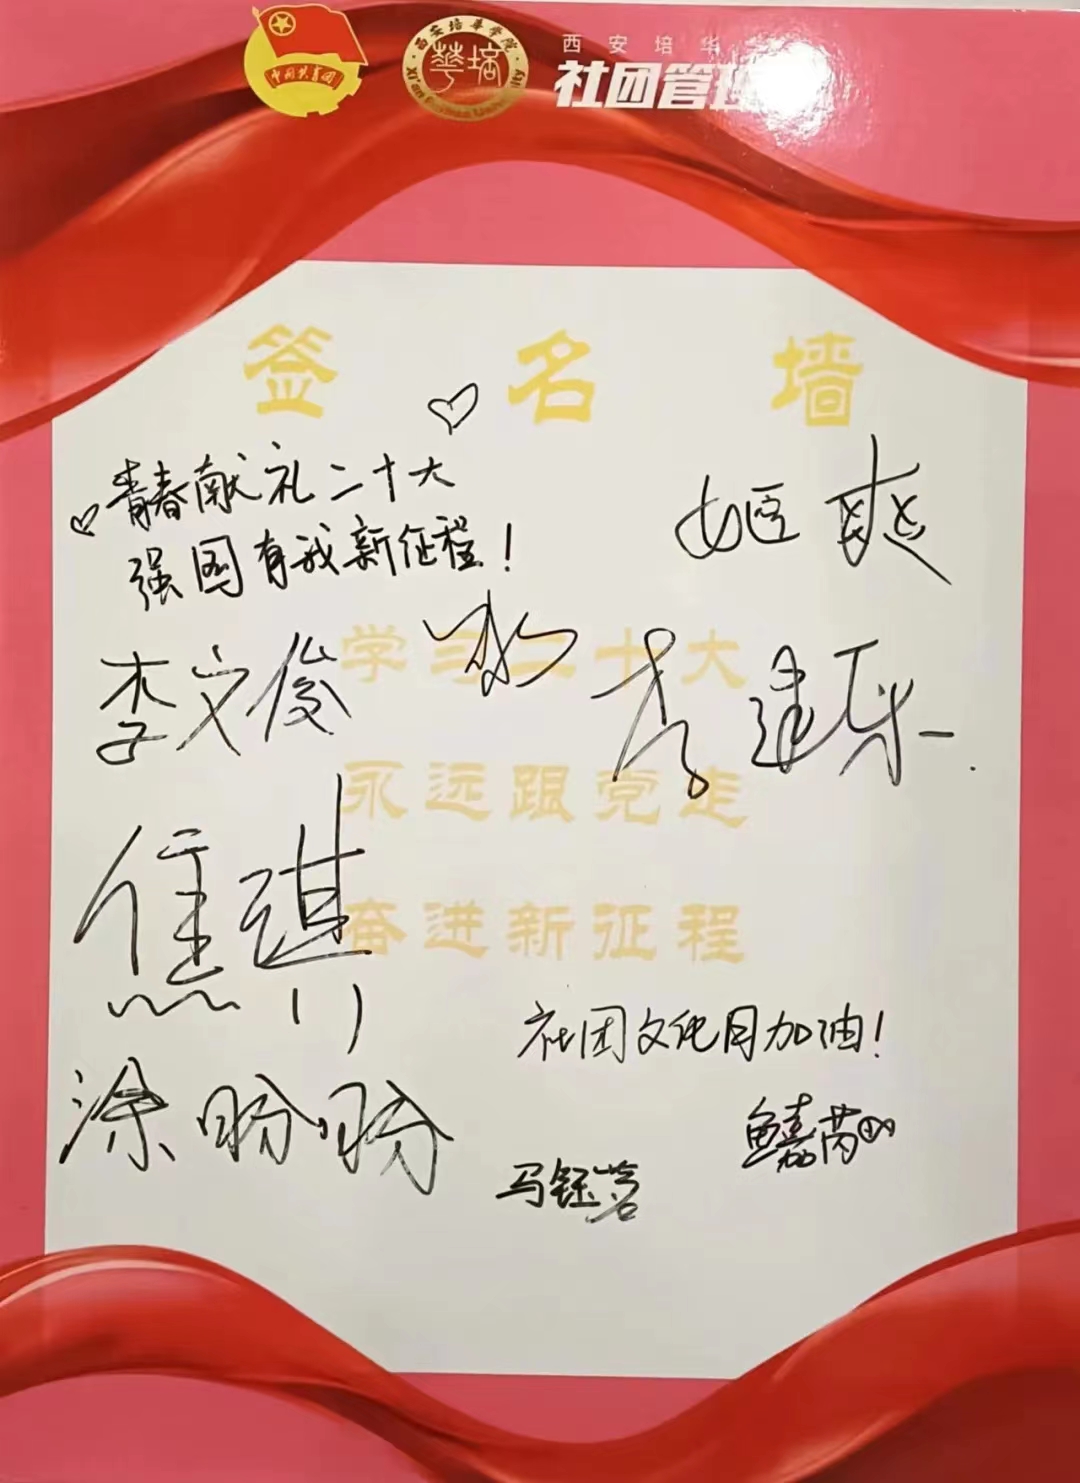 中国共青团
西安培华学院
西安培华
社团管理
签名墙
青春献礼二十大
强国有我新征程！
姬爽
学习二十大
李文俊
李建东
永远跟党走
焦琪
奋进新征程
社团文化月加油！
涂盼盼
马钰茗